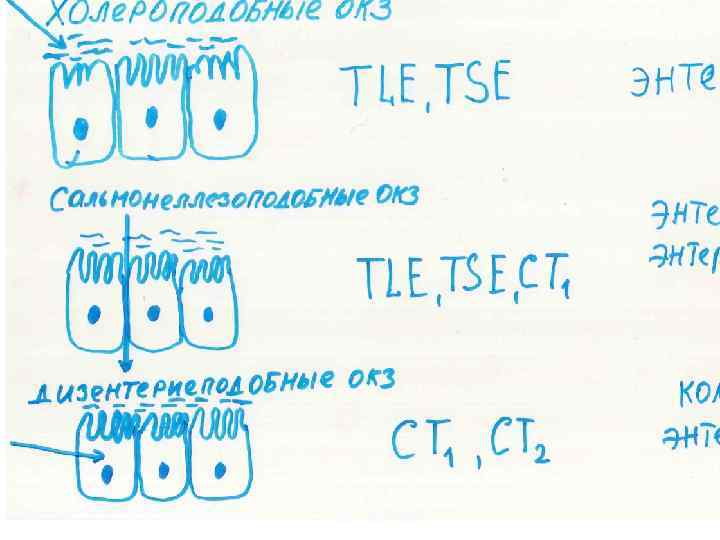 ХОЛЕРОПОДОБНЫЕ ОКЗ
TLE, TSE
ЭНТЕ
САЛЬМОНЕЛЛЕЗОПОДОБНЫЕ ОКЗ
ЭНТЕ
TLE, TSE, CT1
ЭНТЕР
ДИЗЕНТЕРИЕПОДОБНЫЕ ОКЗ
КОЛ
CT1, CT2
ЭНТЕ